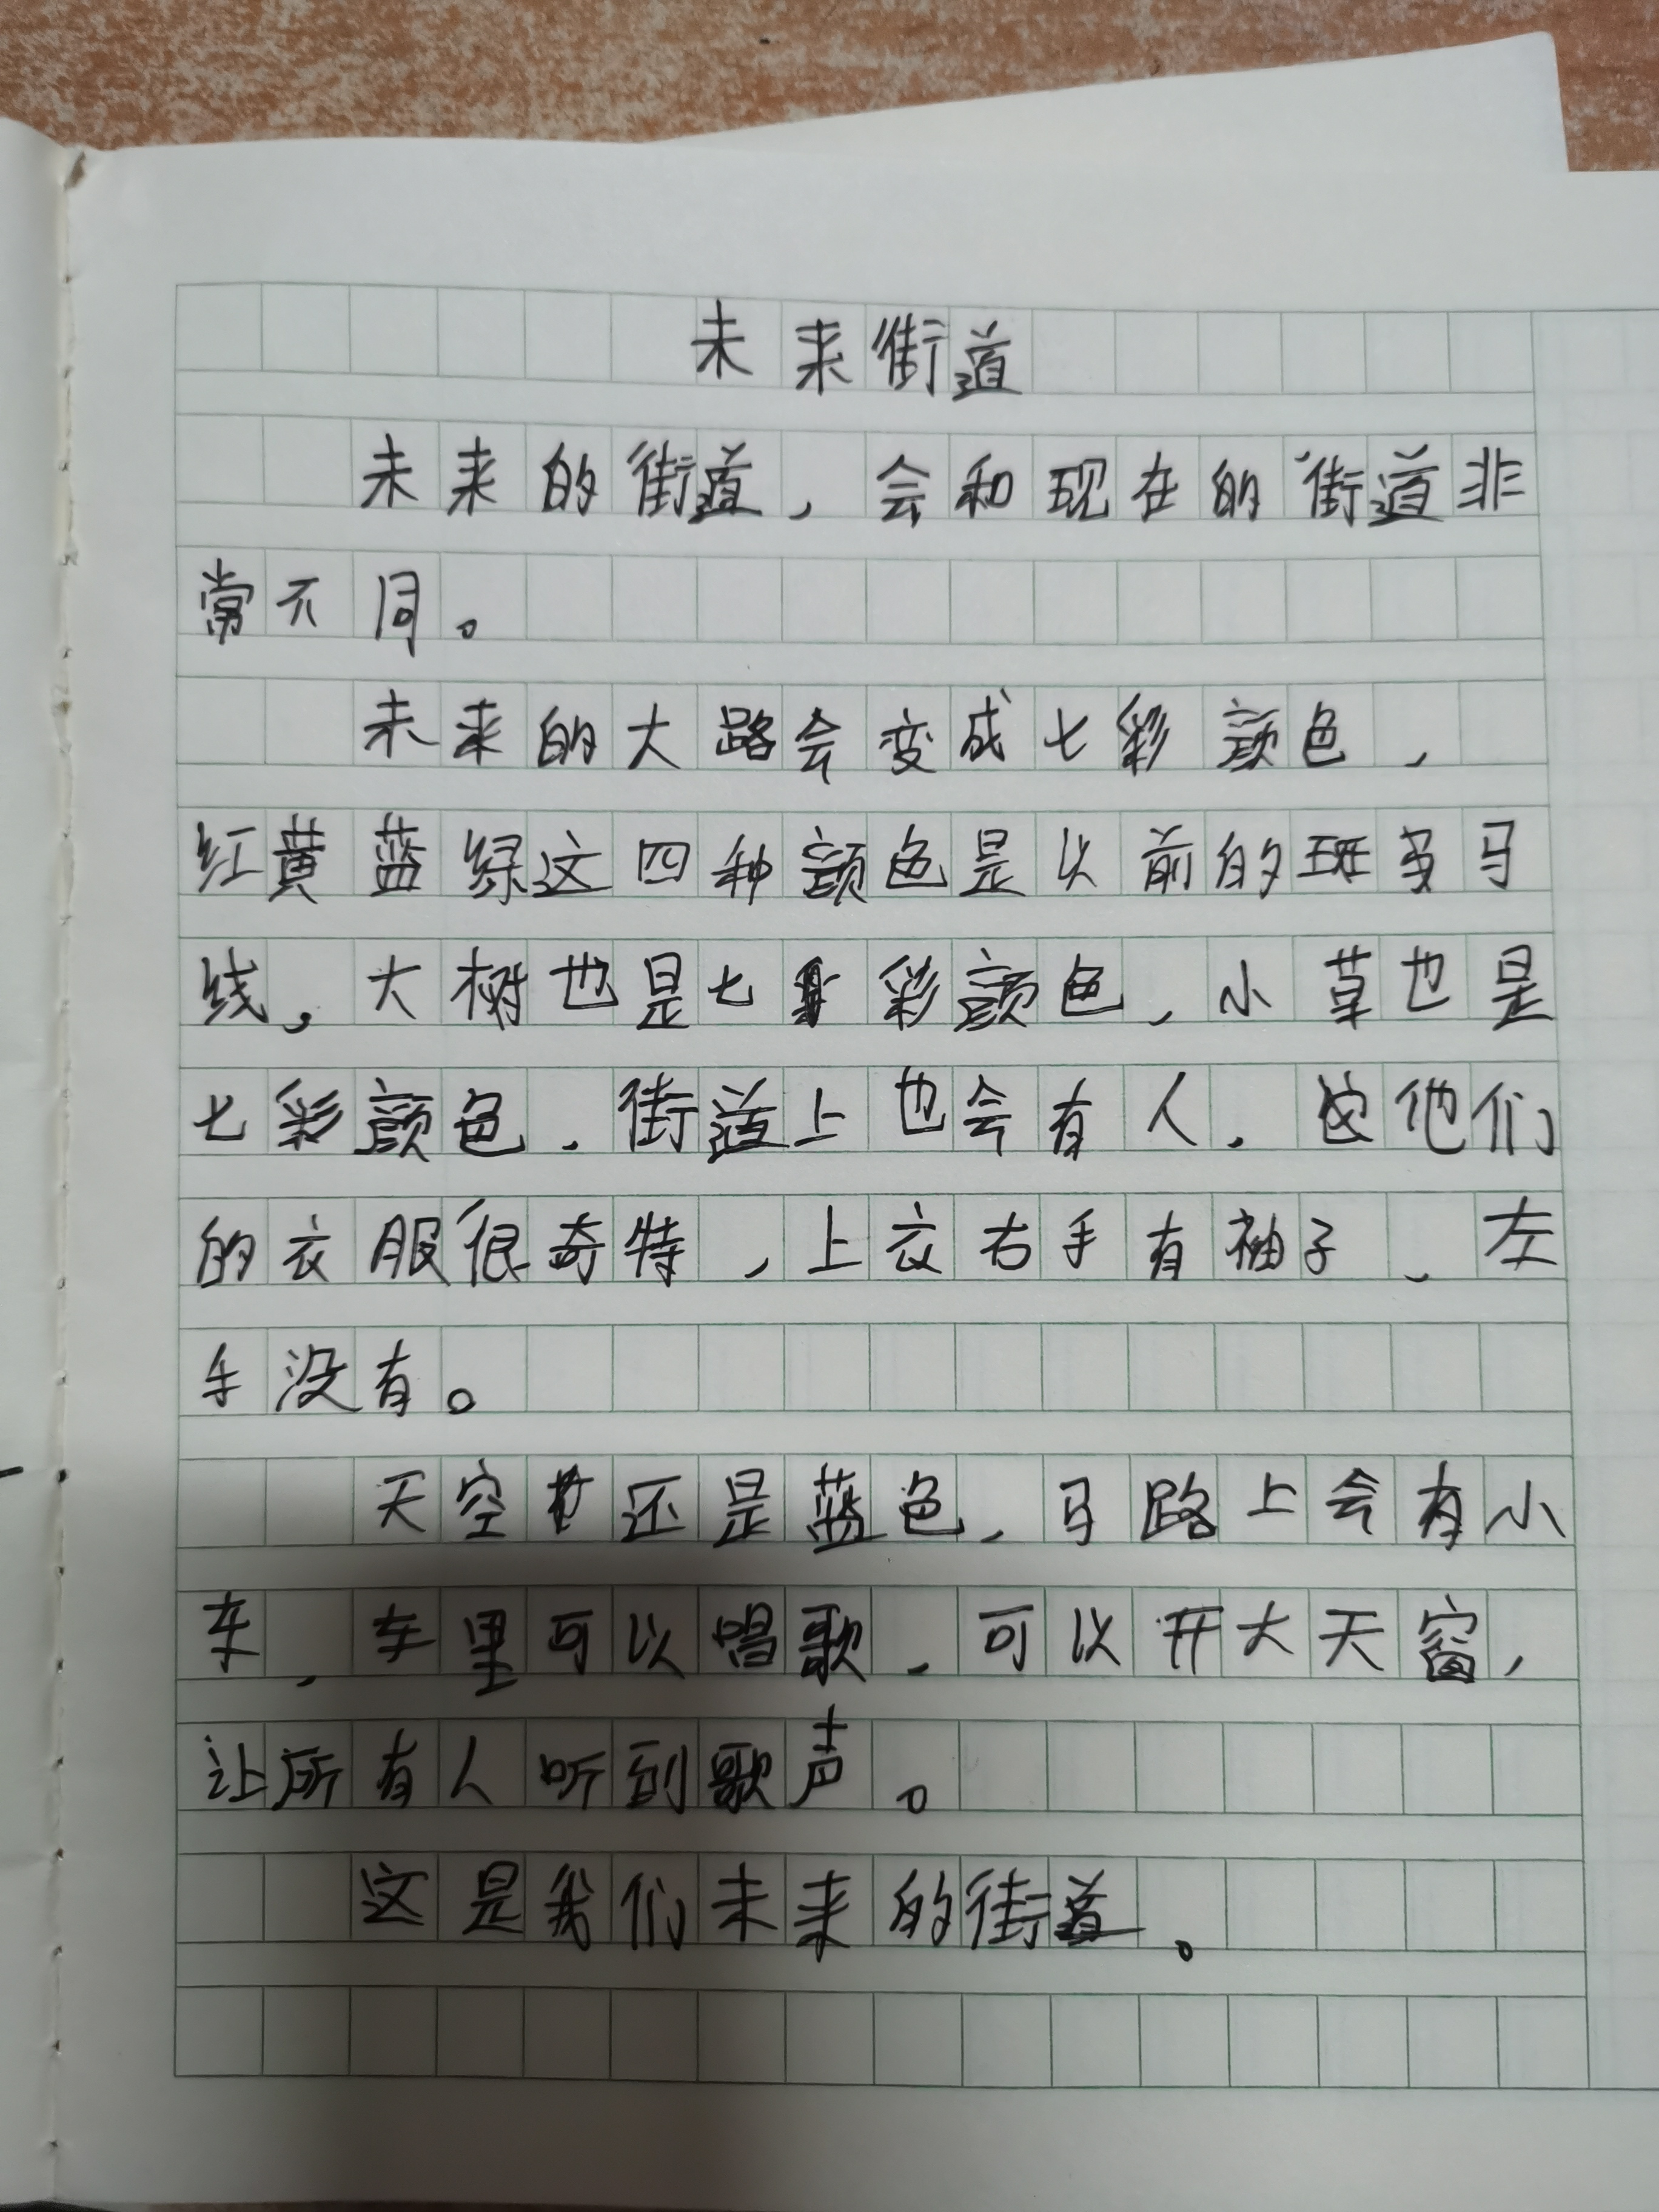 未来街道
未来的街道，会和现在的街道非
常不同。
未来的大路会变成七彩颜色，
红黄蓝绿这四种颜色是以前的斑马
线，大树也是七彩颜色，小草也是
七彩颜色．街道上也会有人．他们
的衣服很奇特，上衣右手有袖子、左
手没有。
天空还是蓝色，马路上会有小
车，车里可以唱歌．可以开大天窗，
让所有人听到歌声。
这是我们未来的街道。